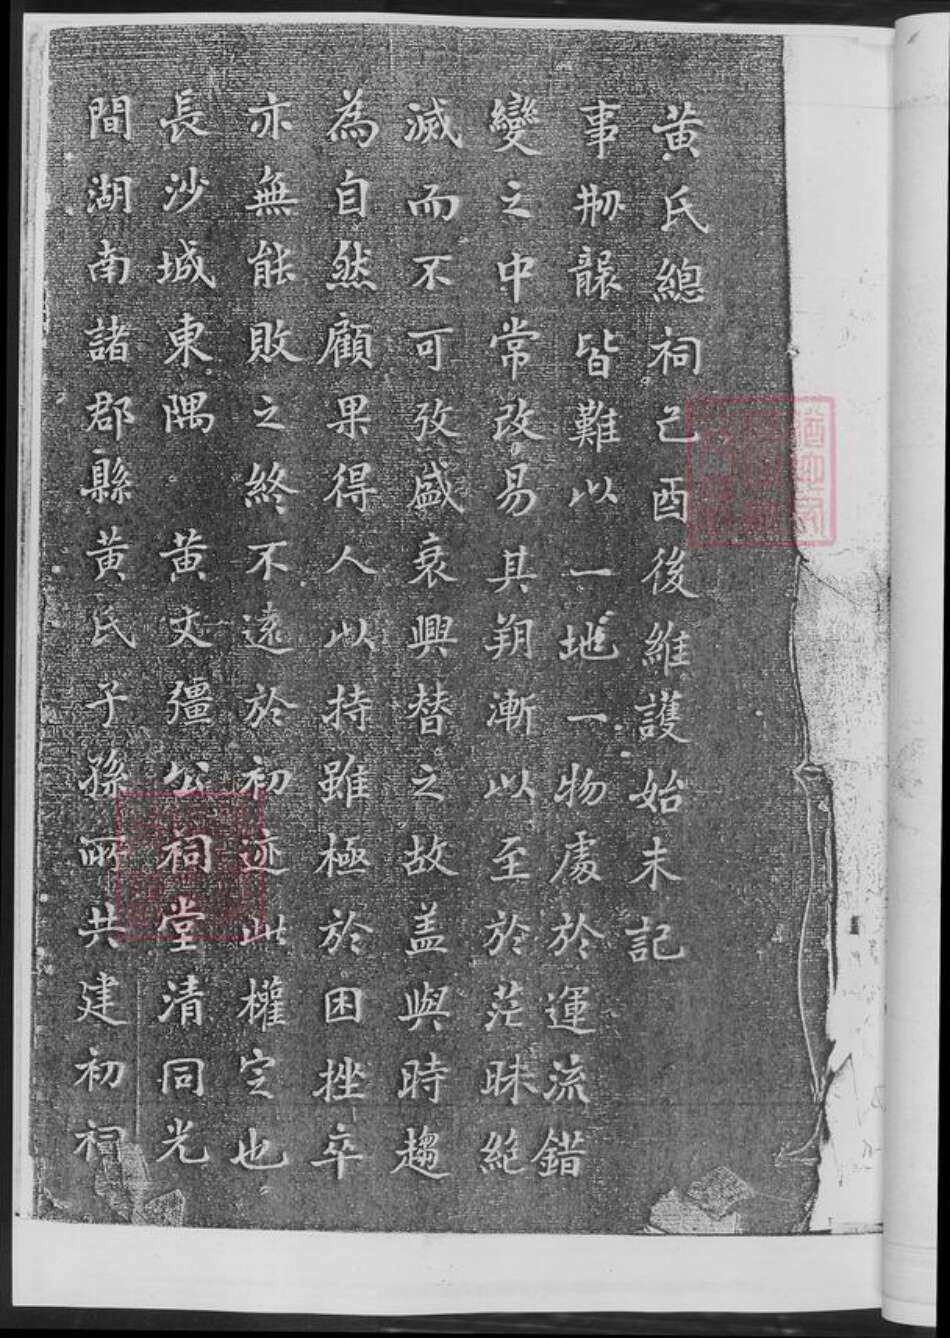 黃氏總祠己酉後維護始末記
事物皆難以一地一物處於運流錯
變之中常改易其朔漸以至於茫昧絕
滅而不可攷盛衰興替之故盖與時趨
為自然顧果得人以持雖極於困挫卒
亦無能敗之終不遠於初迹此權定也
長沙城東隅 黃文彊公祠堂清同光
間湖南諸郡縣黃氏子孫所共建初祠